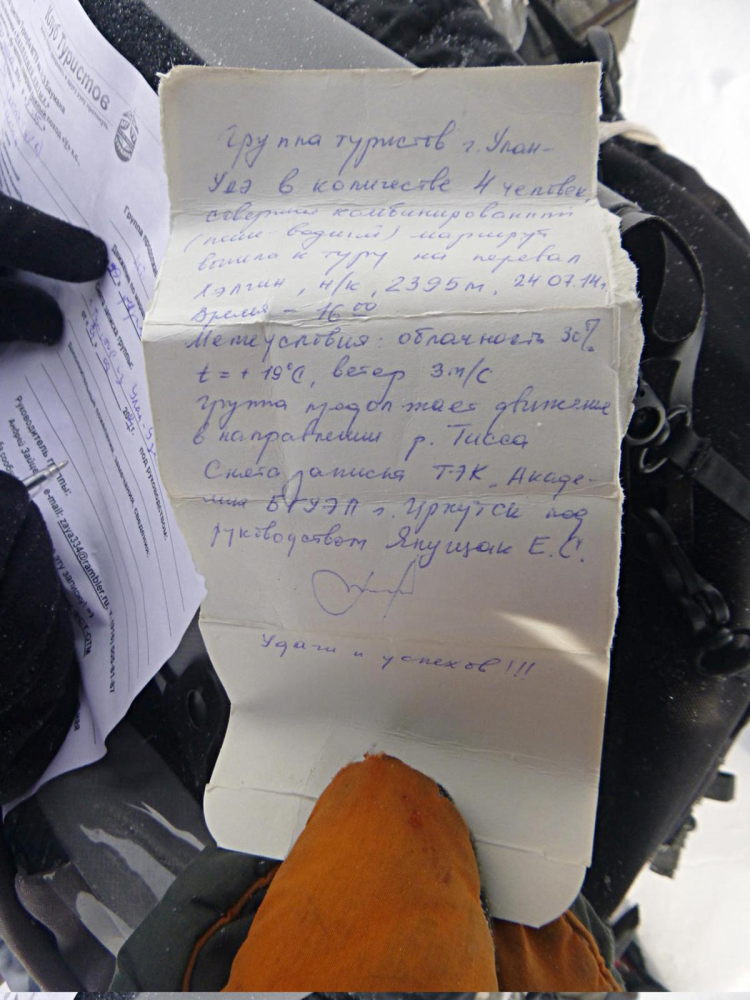 Группа туриств г. Улан-
Удэ в количестве 4 человек,
совершая комбинированный
(пеше-водный) маршрут
вышла к туру на перевал
Хэлгин, н/к, 2395м, 24.07.14г.
Время - 16 00
Метеусловия: облачность 30%
t = + 19°C, ветер 3 м/с
группа продолжает движение
в направлении р. Тисса
Снята записка ТЭК Акаде-
мии БГУЭП г. Иркутск под
руководством Япущак Е.С.
Удачи и успехов!!!
Клуб Туристов
Группа
под руководством:
Руководитель группы:
Андрей Зайцев
e-mail: zaya334@rambler.ru